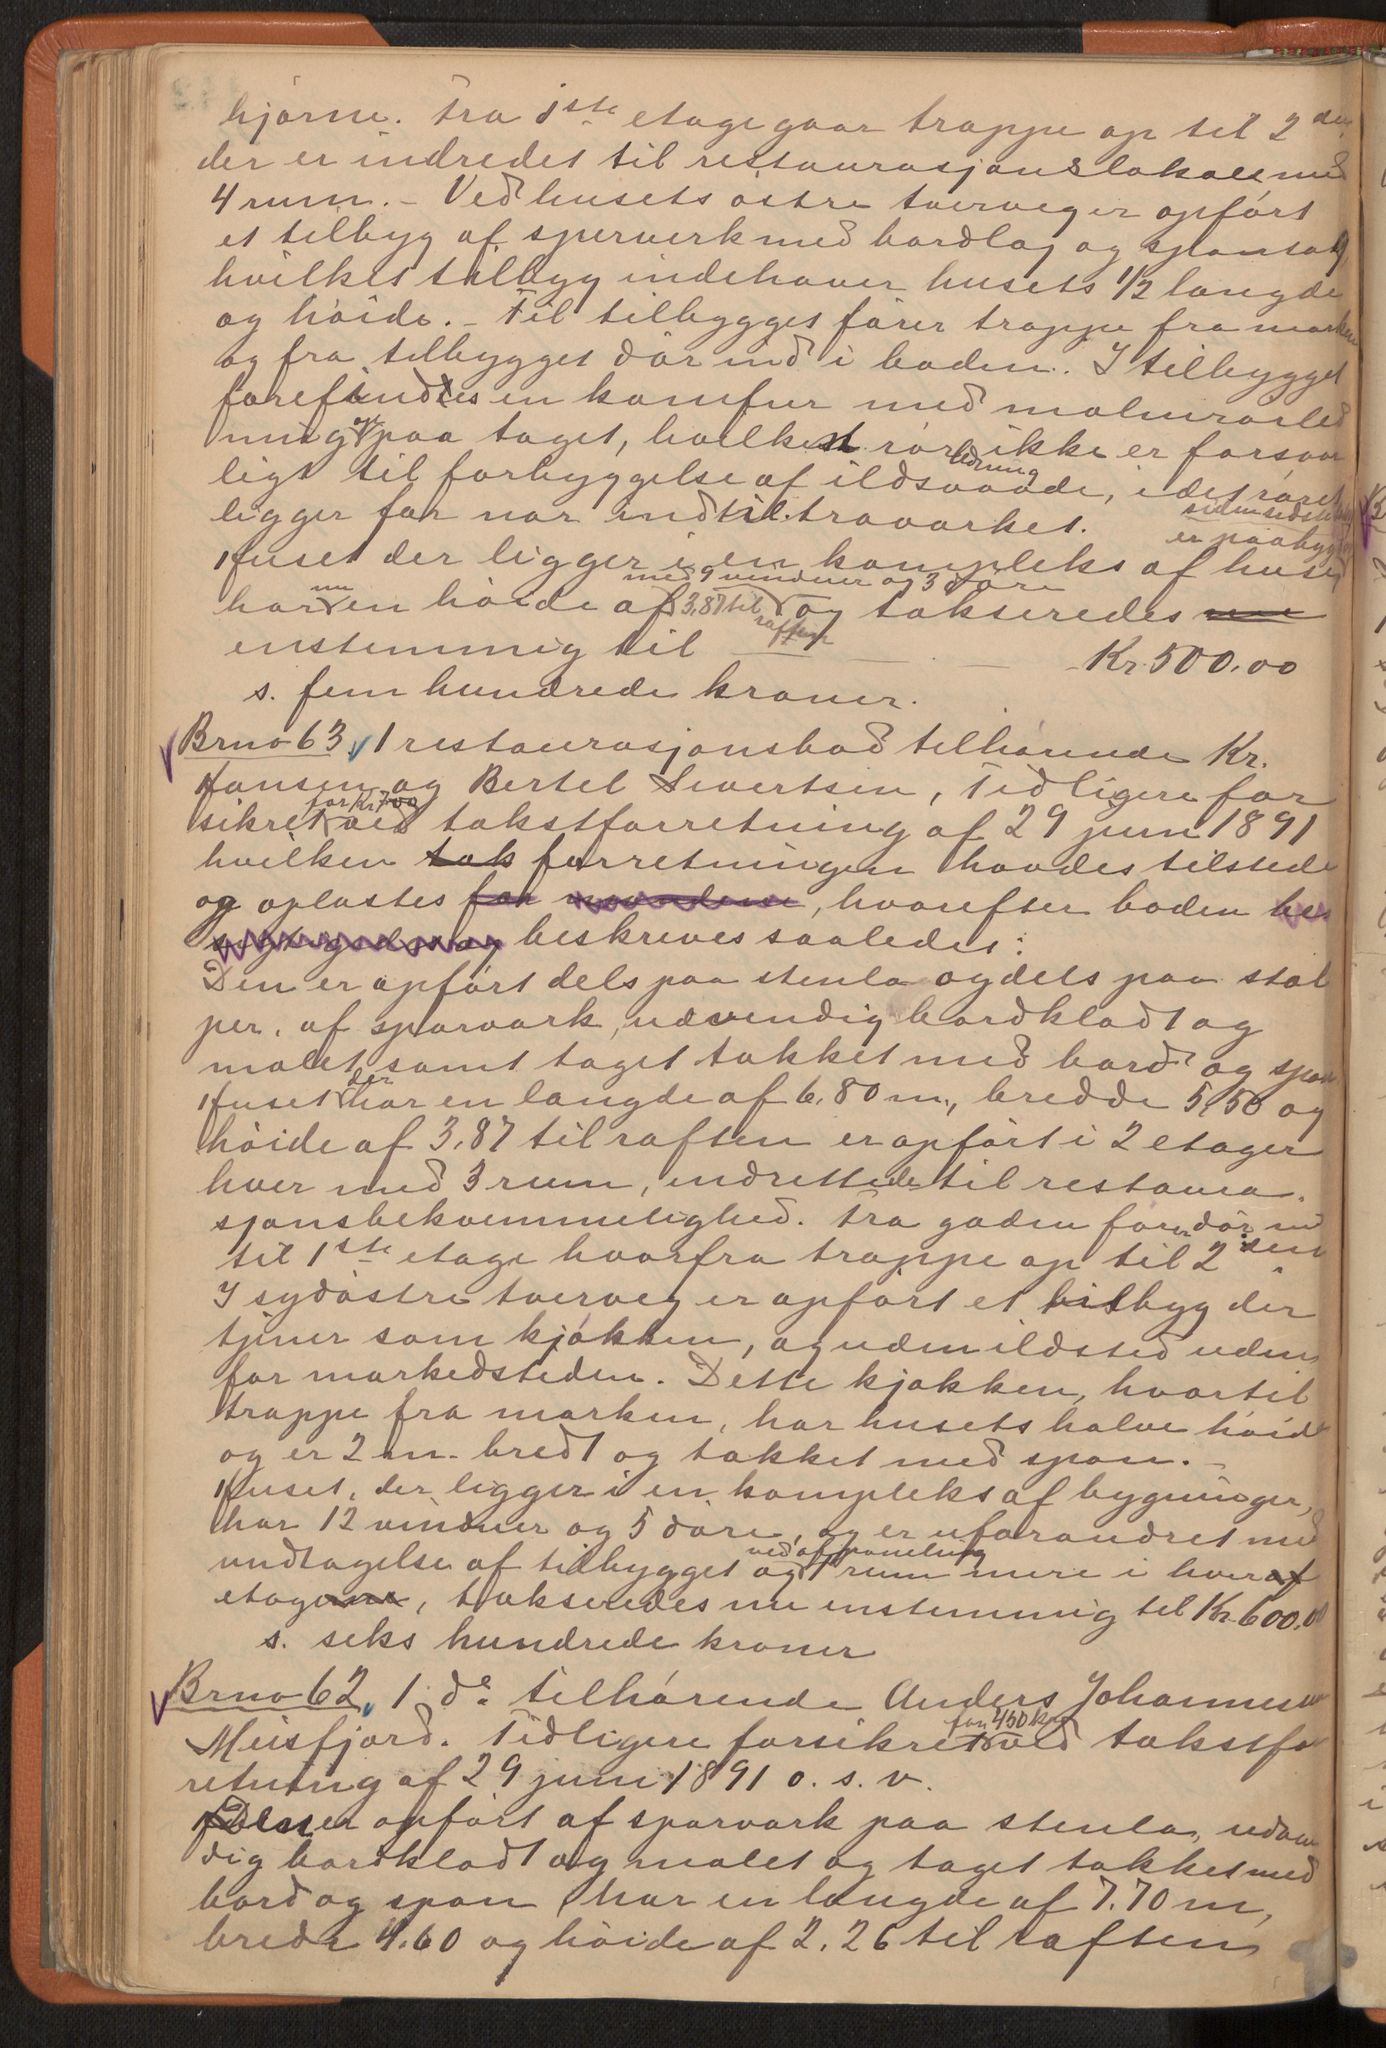 hjørne. Fra 1ste etage gaar trappe op til 2den
der er indredet til restaurasjonslokale med
4 rum. - Ved husets østre tverveg er opført
et tilbyg af sperverk med bordlag og spontag,
hvilket tilbyg indehaver husets 1/2 længde
og høide. - Til tilbygget fører trappe fra marken
og fra tilbygget dør ind i boden. I tilbygget
forefindtes en komfur med malmrørled
ning op paa taget, hvilket rørledning ikke er forsvar
ligt til forbyggelse af ildsvaade, idet røret
ligger for nær indtil træværket.
Huset der ligger i en kompleks af huse,
har nu en høide af 3,87 til raften med 9 vinduer og 3 døre og takseredes
enstemmig til — — Kr. 500.00
s. fem hundrede kroner.
Brno 63, 1 restaurasjonsbod tilhørende Kr.
Hansen og Bertel Sivertsen, Tidligere for
sikret for Kr 700 ved takstforretning af 29 juni 1891
hvilken tak forretningen havdes tilstede
og oplæstes for mændene, hvorefter boden bes
beskreves saaledes:
Den er opført dels paa stenla og dels paa stol
per, af spærværk, udvendig bordklædt og
malet samt taget tækket med bord og spon
Huset der har en længde af 6.80 m., bredde 5,50 og
høide af 3,87 til raften er opført i 2 etager
hver med 3 rum, indrettede til restaura-
sjonsbekvemmelighed. Fra gaden fører dør ind
til 1ste etage hvorfra trappe op til 2den
I sydøstre tverveg er opført et tilbyg der
tjener som kjøkken, og uden ildsted uden
for markedstiden. Dette kjøkken, hvortil
trappe fra marken, har husets halve høide
og er 2 m. bredt og tækket med spon. -
Huset, der ligger i en kompleks af bygninger,
har 12 vinduer og 5 døre, og er uforandret med
undtagelse af tilbygget og ved afpaneling 1 rum mere i hver af
etagerne, takseredes nu enstemmig til Kr 600.00
s. seks hundrede kroner
Brno 62, 1 do tilhørende Anders Johannesen
Meisfjord. Tidligere forsikret for 460 kr ved takstfor
retning af 29 juni 1891 o. s. v.
Den er opført af spærværk paa stenla, udven
dig bordklædt og malet og taget tækket med
bord og spon har en længde af 7.70 m,
bredde 4.60 og høide af 2.26 til raften